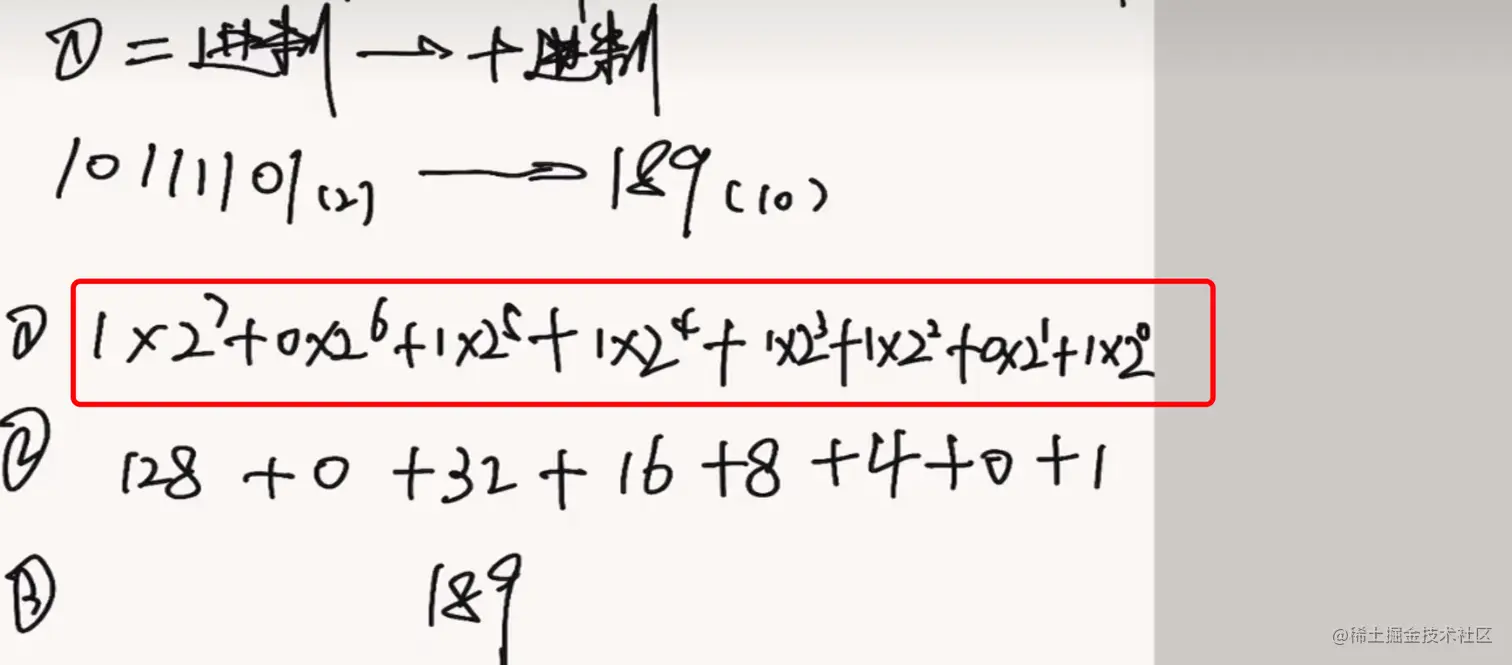 ① 二进制 → 十进制
10111101(2) → 189(10)
① 1×2⁷+0×2⁶+1×2⁵+1×2⁴+1×2³+1×2²+0×2¹+1×2⁰
② 128+0+32+16+8+4+0+1
③ 189
@稀土掘金技术社区